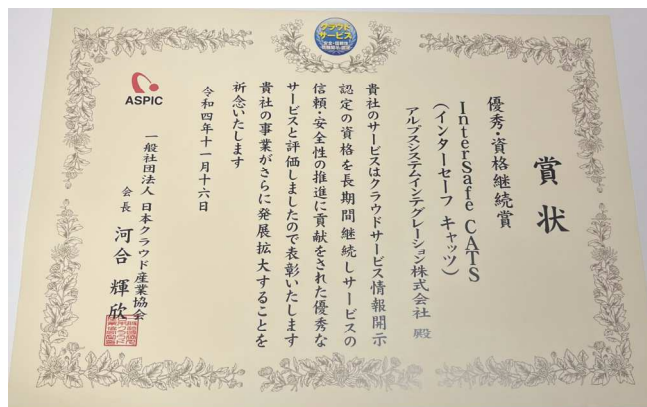 クラウド
サービス
安全・信頼性
情報開示認定
賞状
優秀・資格継続賞
InterSafe CATS
(インターセーフ キャッツ)
アルプスシステムインテグレーション株式会社 殿
貴社のサービスはクラウドサービス情報開示
認定の資格を長期間継続しサービスの
信頼・安全性の推進に貢献をされた優秀な
サービスと評価しましたので表彰いたします
貴社の事業がさらに発展拡大することを
祈念いたします
令和四年十一月十六日
ASPIC
一般社団法人 日本クラウド産業協会
会長 河合 輝欣